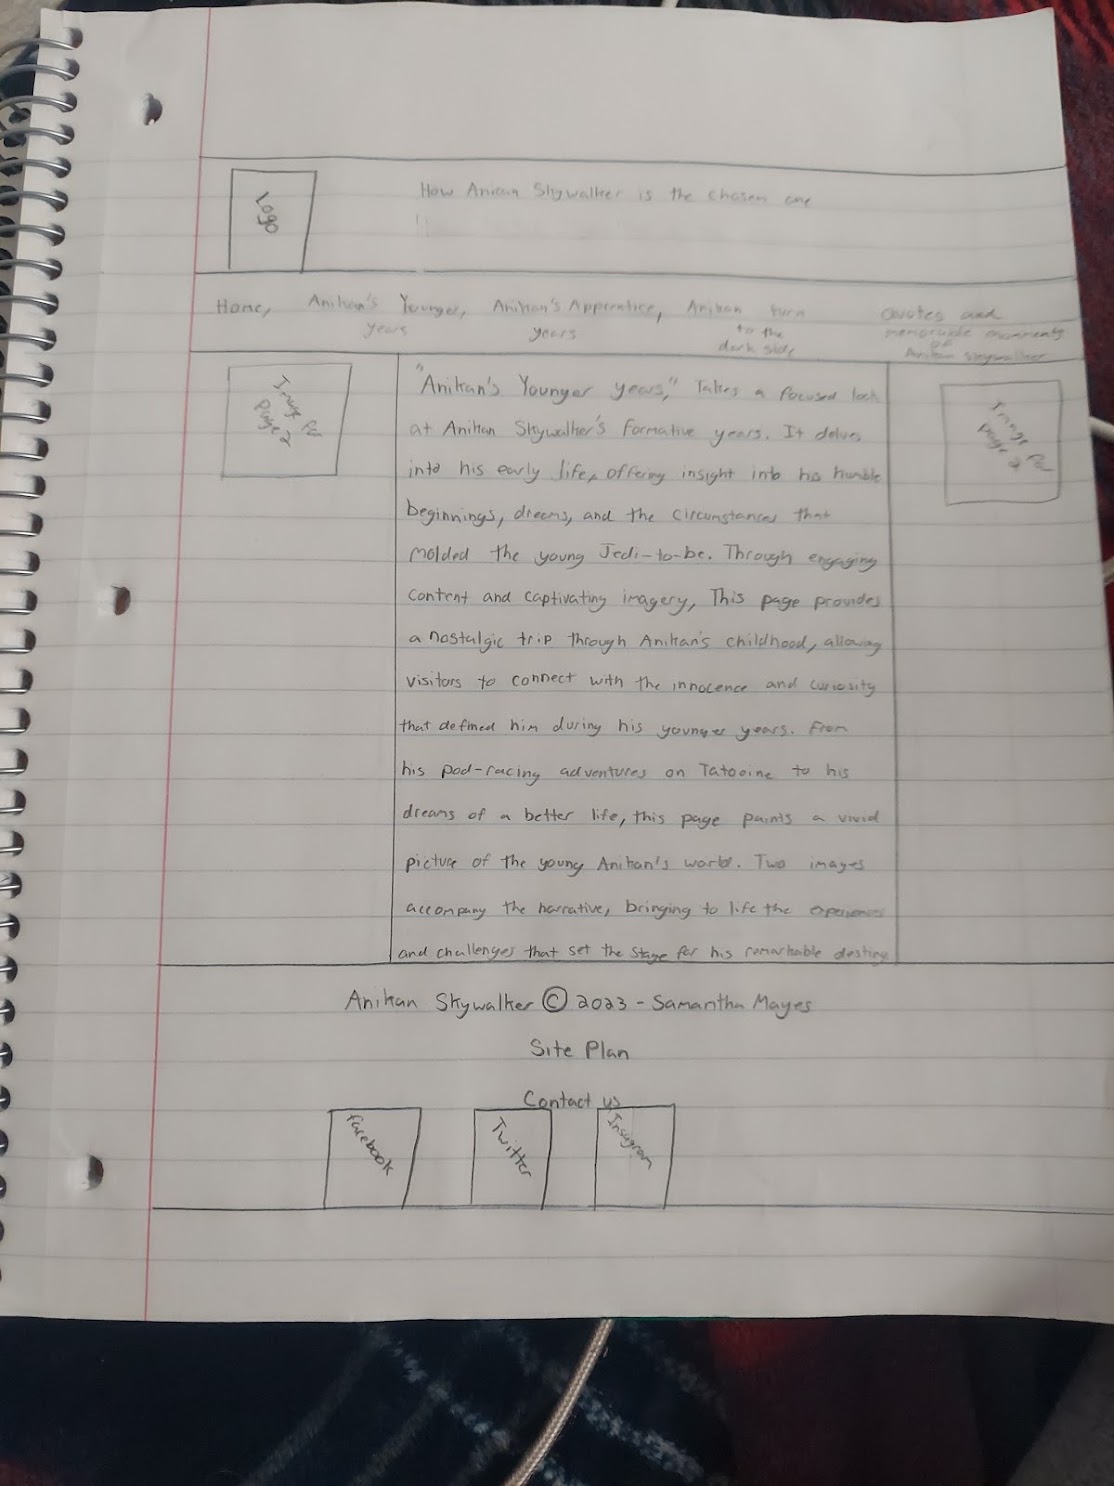 Logo
How Anican Skywalker is the chosen one
Home, Anikan's Younger, Anikan's Apprentice, Anikan turn Quotes and
years years to the memorable moments
dark side of
Anikan Skywalker
Image for
page 2
"Anikan's Younger years," Takes a focused look
at Anikan Skywalker's formative years. It delves
into his early life, offering insight into his humble
beginnings, dreams, and the circumstances that
molded the young Jedi-to-be. Through engaging
content and captivating imagery, This page provides
a nostalgic trip through Anikan's childhood, allowing
visitors to connect with the innocence and curiosity
that defined him during his younger years. From
his pod-racing adventures on Tatooine to his
dreams of a better life, this page paints a vivid
picture of the young Anikan's world. Two images
accompany the narrative, bringing to life the experiences
and challenges that set the stage for his remarkable destiny
Image for
page 2
Anikan Skywalker © 2023 - Samantha Mayes
Site Plan
Contact us
Facebook
Twitter